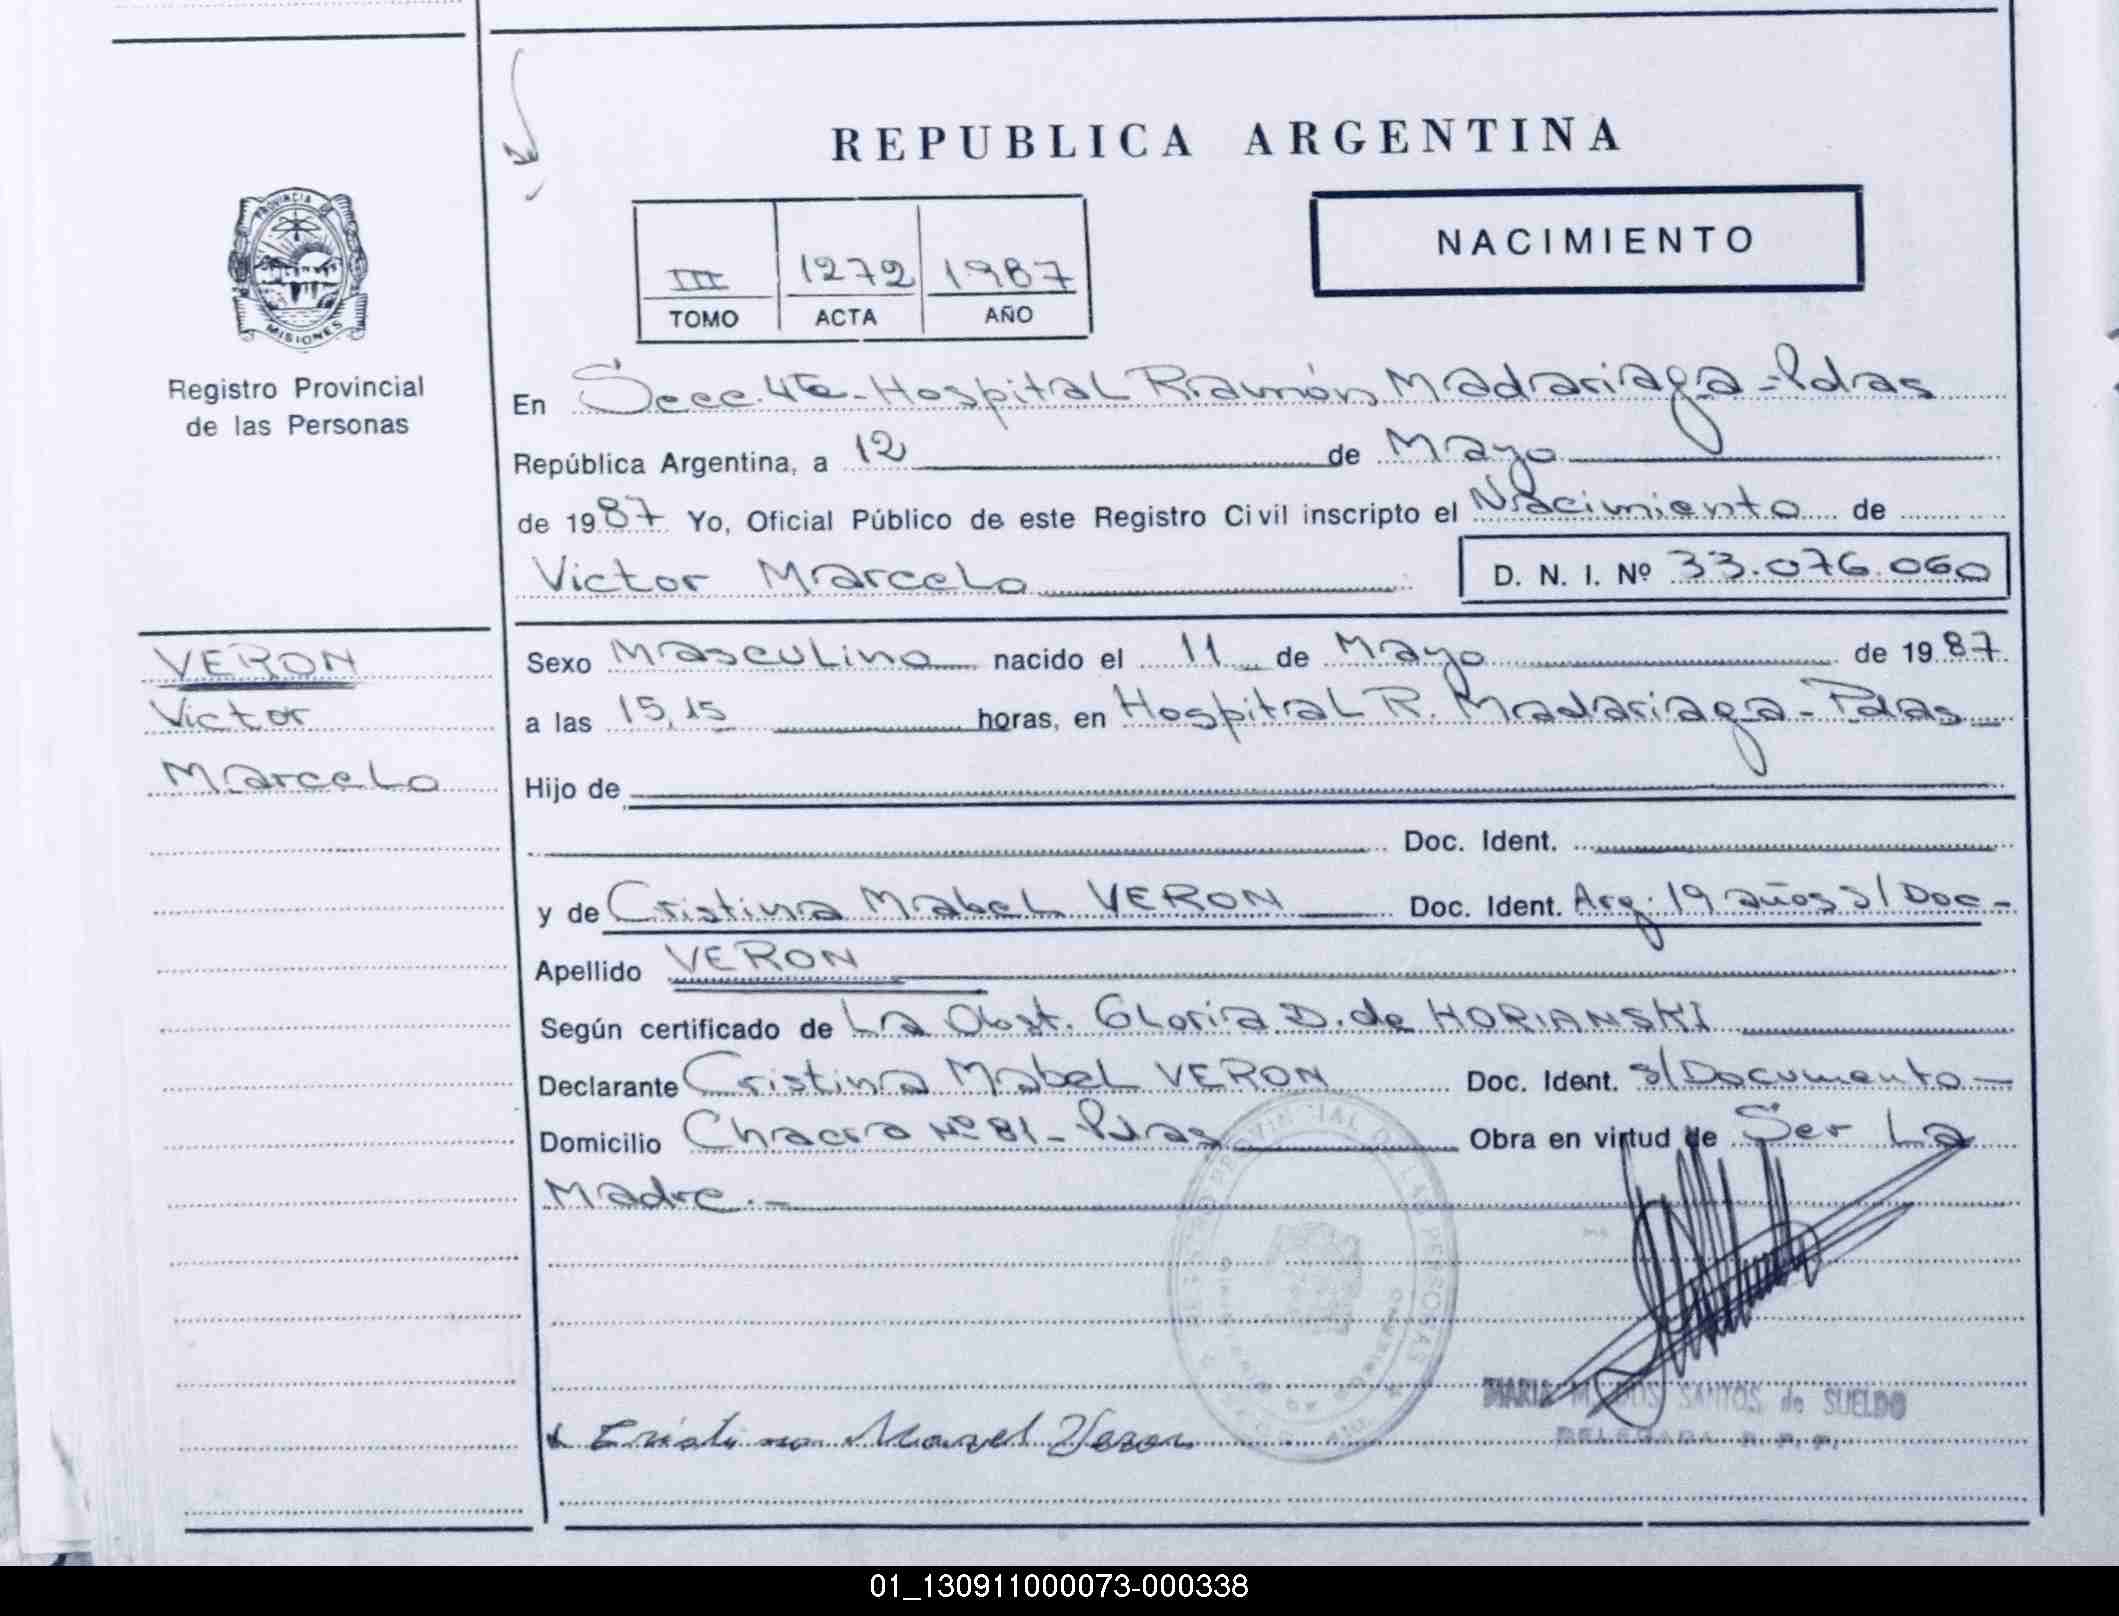 REPUBLICA ARGENTINA
PROVINCIA DE
MISIONES
Registro Provincial
de las Personas
III 1272 1987
TOMO ACTA AÑO
NACIMIENTO
En Secc. 4ta - Hospital Ramón Madariaga - Pdas
República Argentina, a 12 de Mayo
de 1987 Yo, Oficial Público de este Registro Civil inscripto el Nacimiento de
Victor Marcelo D. N. I. Nº 33.076.060
VERON
Victor
Marcelo
Sexo Masculino nacido el 11 de Mayo de 1987
a las 15,15 horas, en Hospital R. Madariaga - Pdas
Hijo de
Doc. Ident.
y de Cristina Mabel VERON Doc. Ident. Arg. 19 años s/Doc -
Apellido VERON
Según certificado de La Obst. Gloria D. de HORIANSKI
Declarante Cristina Mabel VERON Doc. Ident. s/Documento -
Domicilio Chacra Nº 81 - Pdas Obra en virtud de Ser La
Madre. -
MARIA M. DOS SANTOS de SUELDO
DELEGADA R. P. P.
Cristina Mavel Veron
01_130911000073-000338